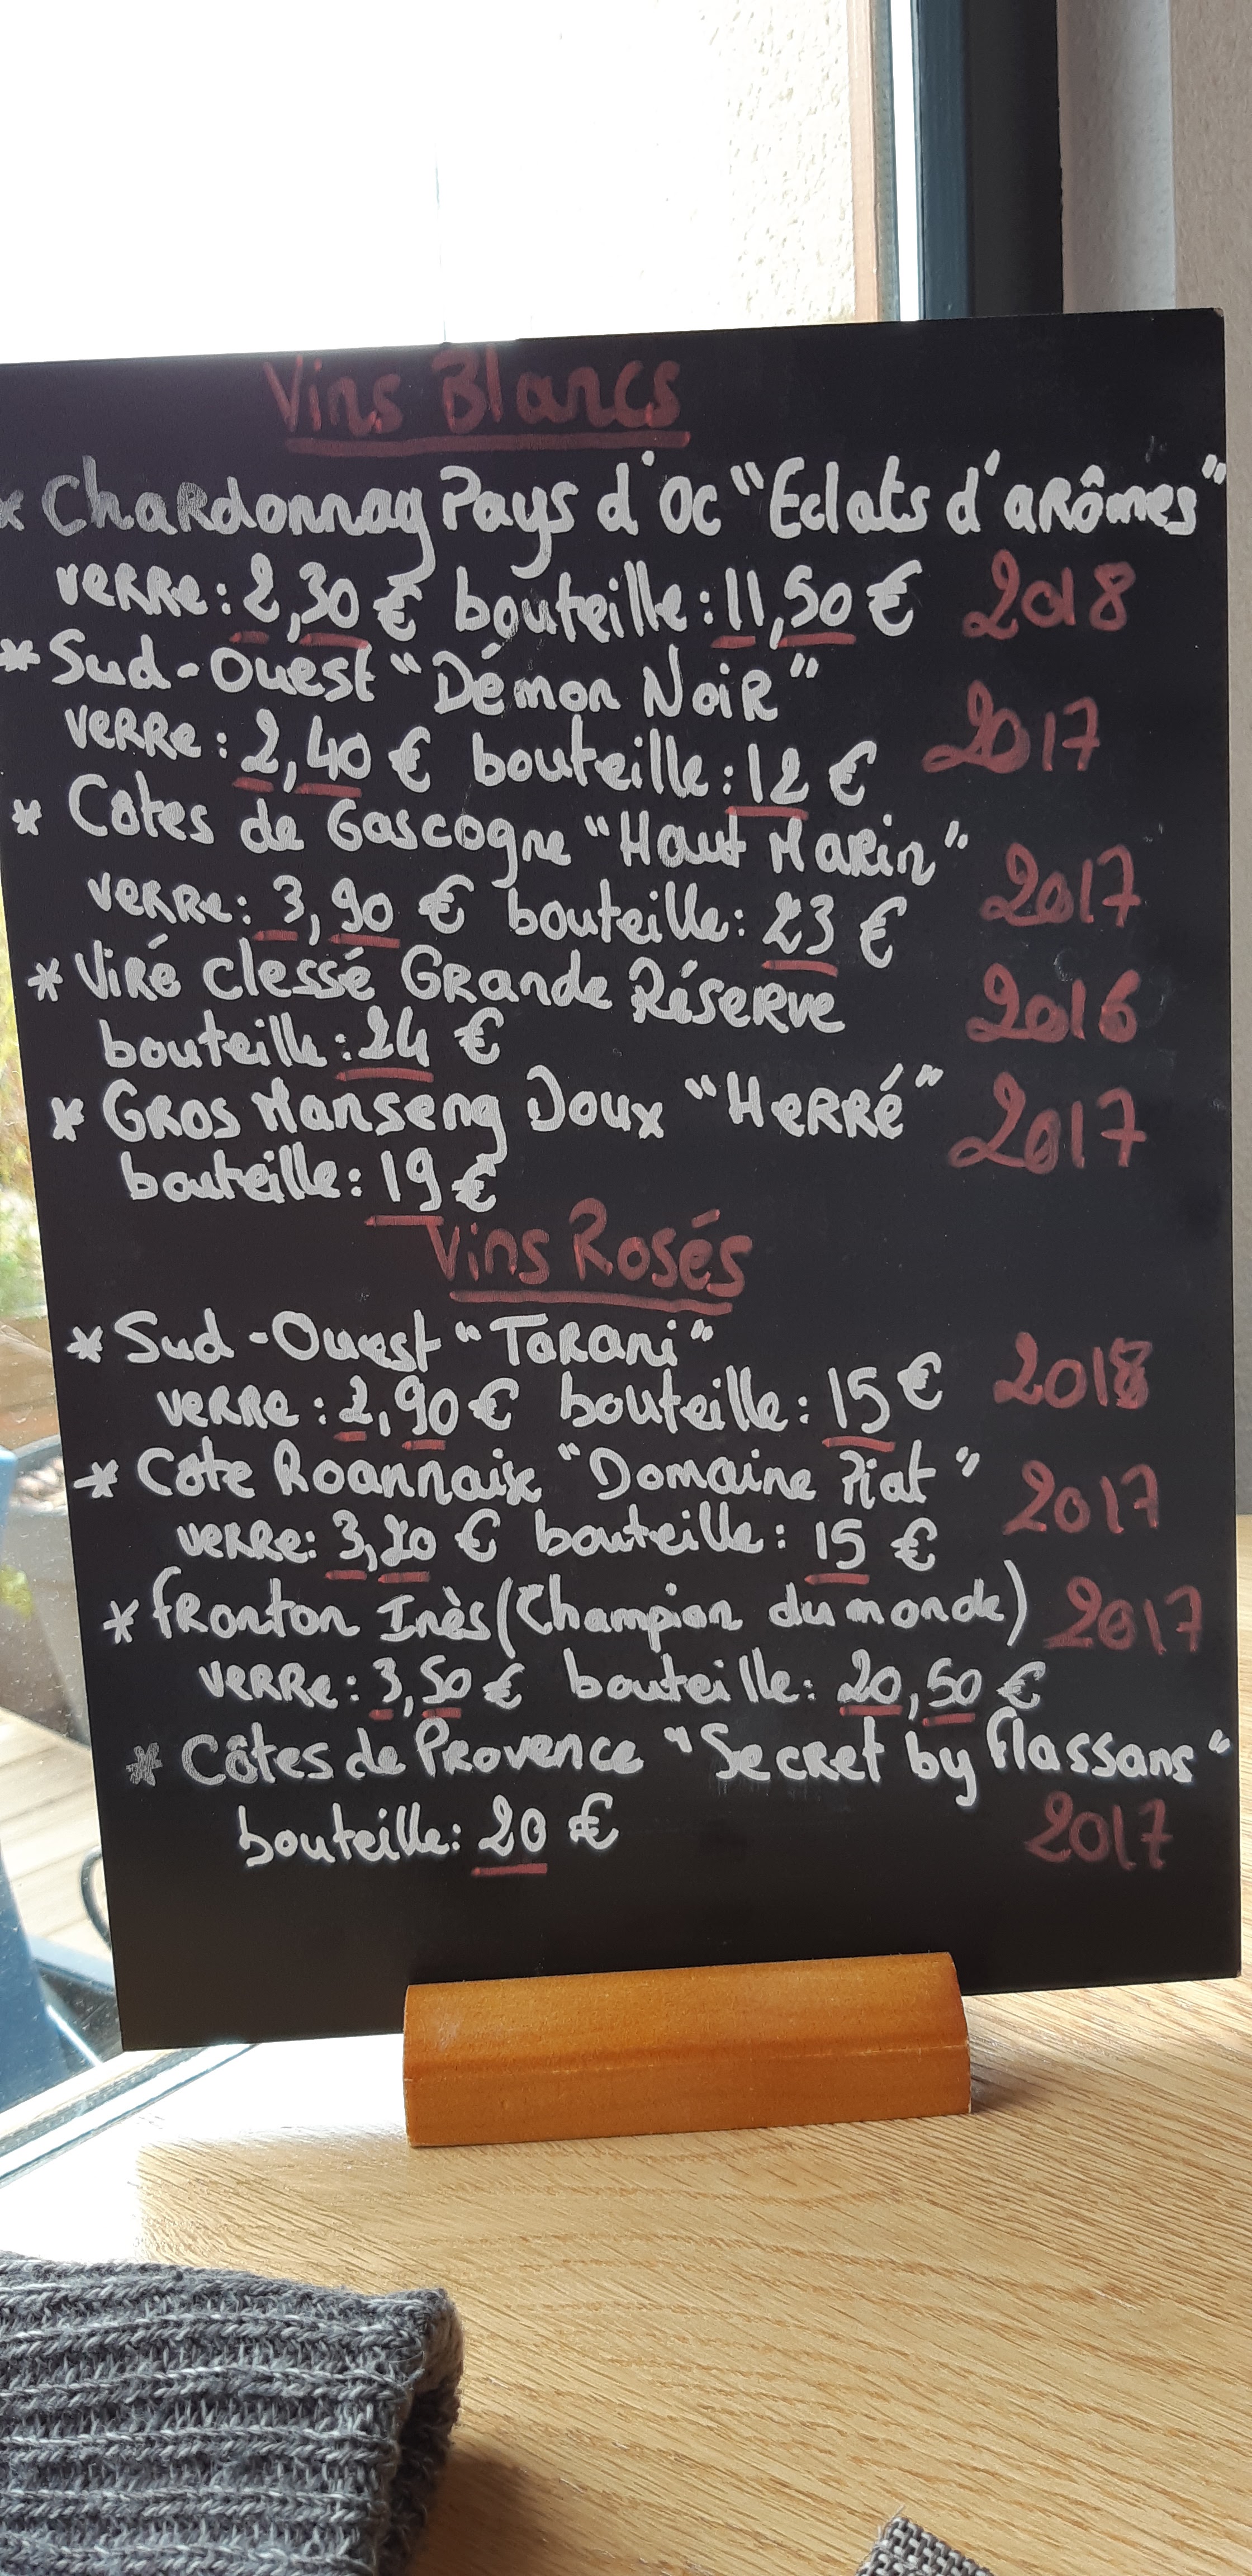 Vins Blancs
* Chardonnay Pays d'Oc "Eclats d'arômes"
verre: 2,30 € bouteille: 11,50 € 2018
* Sud-Ouest "Démon Noir"
verre: 2,40 € bouteille: 12 € 2017
* Côtes de Gascogne "Haut Marin"
verre: 3,90 € bouteille: 23 € 2017
* Viré Clessé Grande Réserve 2016
bouteille: 24 €
* Gros Manseng Doux "Herré" 2017
bouteille: 19 €
Vins Rosés
* Sud-Ouest "Tarani"
verre: 2,90 € bouteille: 15 € 2018
* Côte Roannaise "Domaine Piat" 2017
verre: 3,20 € bouteille: 15 €
* Fronton Inès (Champion du monde) 2017
verre: 3,50 € bouteille: 20,50 €
* Côtes de Provence "Secret by Flassans"
bouteille: 20 € 2017